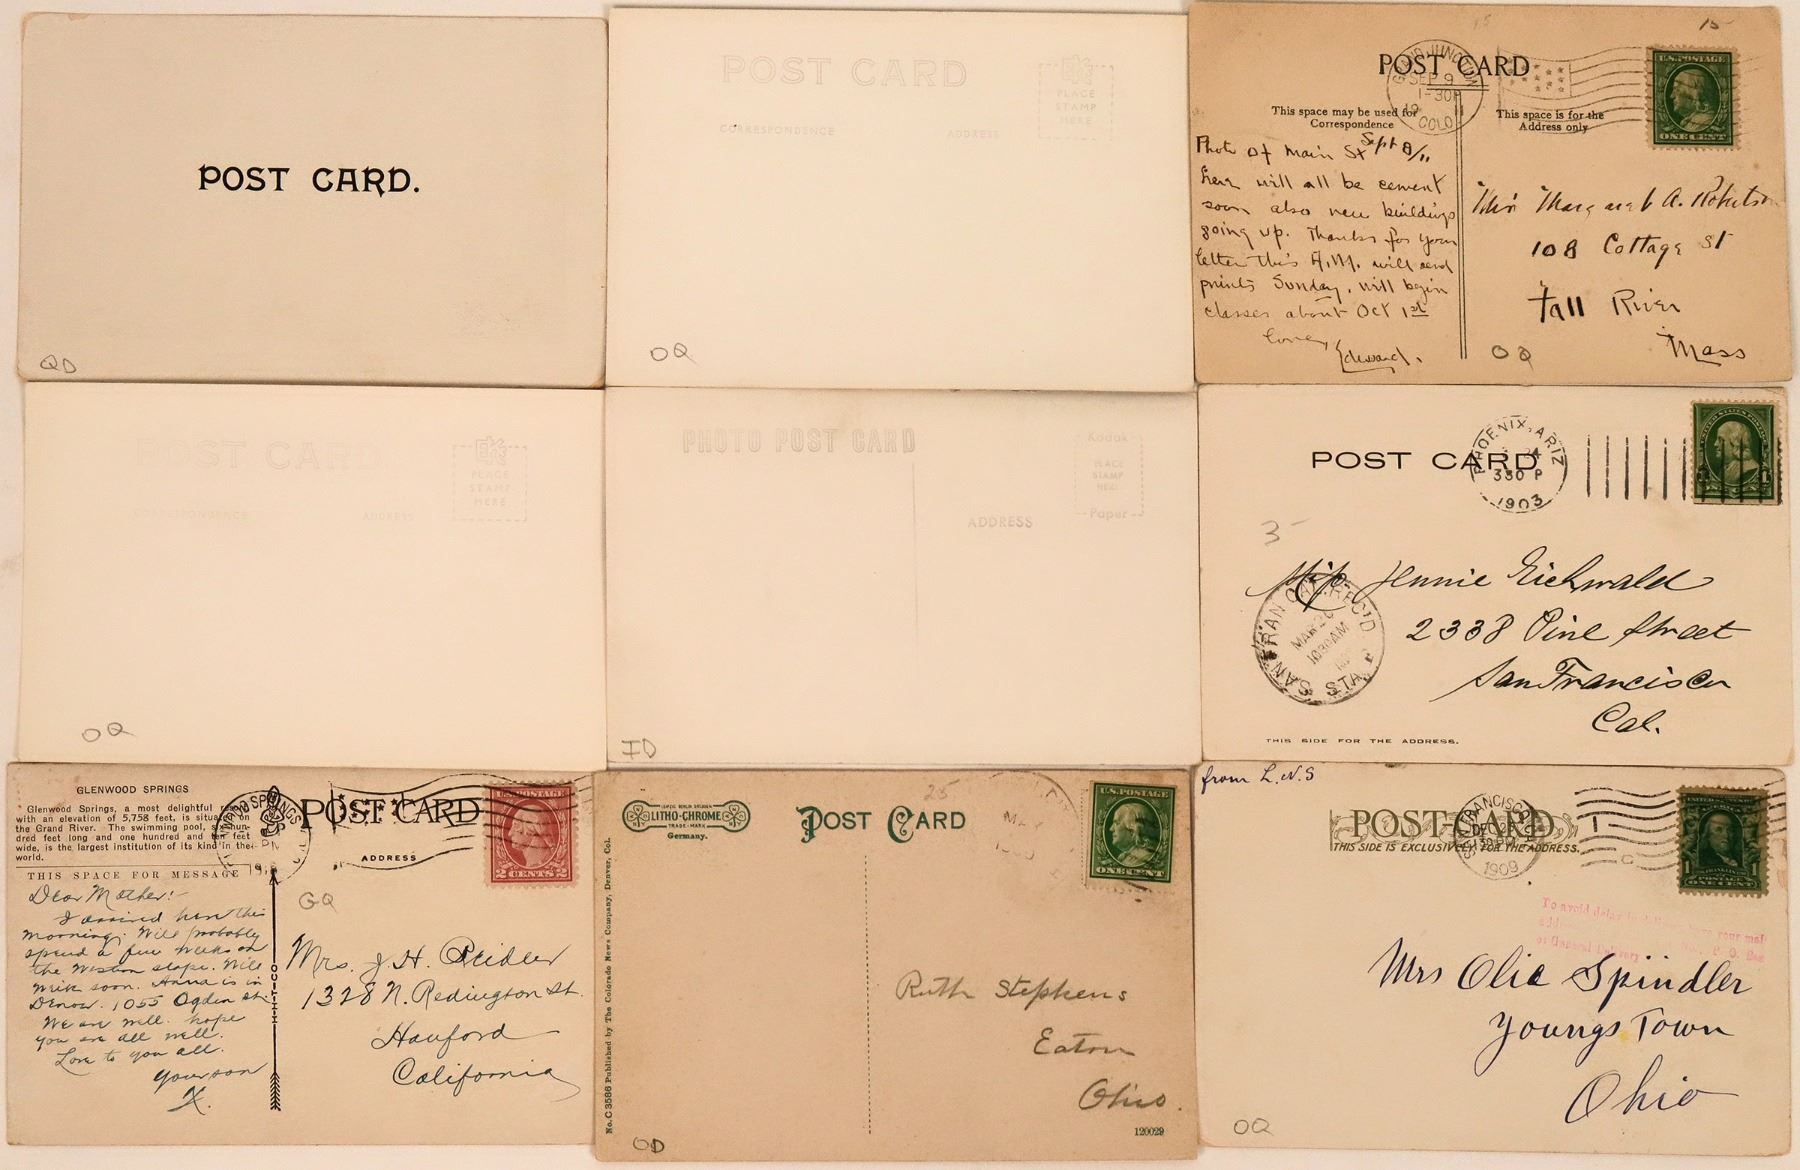 POST CARD.
OD
POST CARD
PLACE
STAMP
HERE
CORRESPONDENCE
ADDRESS
OQ
15
15
POST CARD
GRAND JUNCTION
SEP 9
1-30P
19 11
COLO
This space may be used for
Correspondence
This space is for the
Address only
U.S. POSTAGE
ONE CENT
Sept 8/11
Photo of Main St
here will all be cement
soon also new buildings
going up. Thanks for your
letter this A.M. will send
prints Sunday, will begin
classes about Oct 1st
Edward.
Margaret A. Robertson
108 Cottage St
Fall River
Mass
OQ
POST CARD
PLACE
STAMP
HERE
CORRESPONDENCE
ADDRESS
OQ
PHOTO POST CARD
Kodak
PLACE
STAMP
HERE
Paper
ADDRESS
ID
POST CARD
PHOENIX, ARIZ
330 P
1903
3-
Jennie Eichwald
2338 Pine Street
San Francisco
Cal.
SAN FRAN CAL. REC'D
MAR 26
1030AM
STA
THIS SIDE FOR THE ADDRESS.
GLENWOOD SPRINGS
Glenwood Springs, a most delightful resort
with an elevation of 5,758 feet, is situated on
the Grand River. The swimming pool, six hun-
dred feet long and one hundred and ten feet
wide, is the largest institution of its kind in the
world.
THIS SPACE FOR MESSAGE
POST CARD
ADDRESS
U.S. POSTAGE
2 CENTS 2
GQ
Dear Mother:-
I arrived here this
morning. Will probably
spend a few weeks on
the Western slope. Will
write soon. Anna is in
Denver. 1055 Ogden St.
We are well. hope
you are all well.
Love to you all.
Your son
X.
H-H-T-CO
Mrs. J. H. Reidler
1328 N. Redington St.
Hanford
California
LEIPZIG BERLIN DRESDEN
LITHO-CHROME
TRADE-MARK
Germany.
POST CARD
25
MAY
U.S. POSTAGE
ONE CENT
No. C 3586 Published by The Colorado News Company, Denver, Col.
Ruth Stephens
Eaton
Ohio.
120029
OD
from L.N.S
POST-CARD
THIS SIDE IS EXCLUSIVELY FOR THE ADDRESS.
SAN FRANCISCO
DEC
1909
To avoid delay
your mail
or General Delivery
P. O. Box
1
FRANKLIN
ONE CENT
Mrs Olie Spindler
Youngs Town
Ohio
OQ